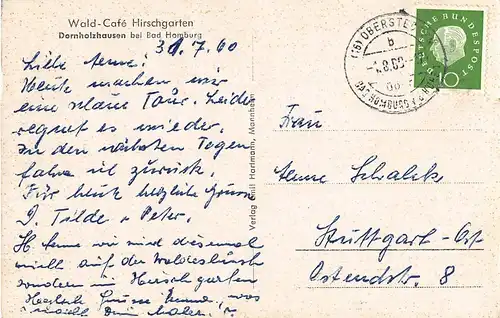 Wald-Café Hirschgarten
Dornholzhausen bei Bad Homburg
31.7.60
Liebe Anne!
Heute machen wir
eine schöne Tour. Leider
regnet es wieder.
In den nächsten Tagen
fahre ich zurück.
Für heute herzliche Grüsse
D. Tilde u. Peter.
Anne wir sind diesmal
nicht auf der
sondern im Hirschgarten
Herzliche Grüsse
Verlag Emil Hartmann, Mannheim
(16) OBERSTE
b
-1.8.60
DEUTSCHE BUNDESPOST
10
Frau
Anne Schalck
Stuttgart-Ost
Ostendstr. 8